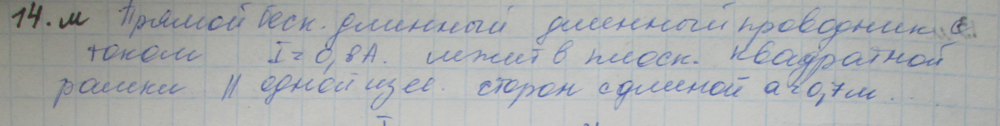 14.м Прямой беск. длинный длинный проводник с
током I = 0,8А. лежит в плоск. квадратной
рамки || одной из ее сторон с длиной а=0,7м...